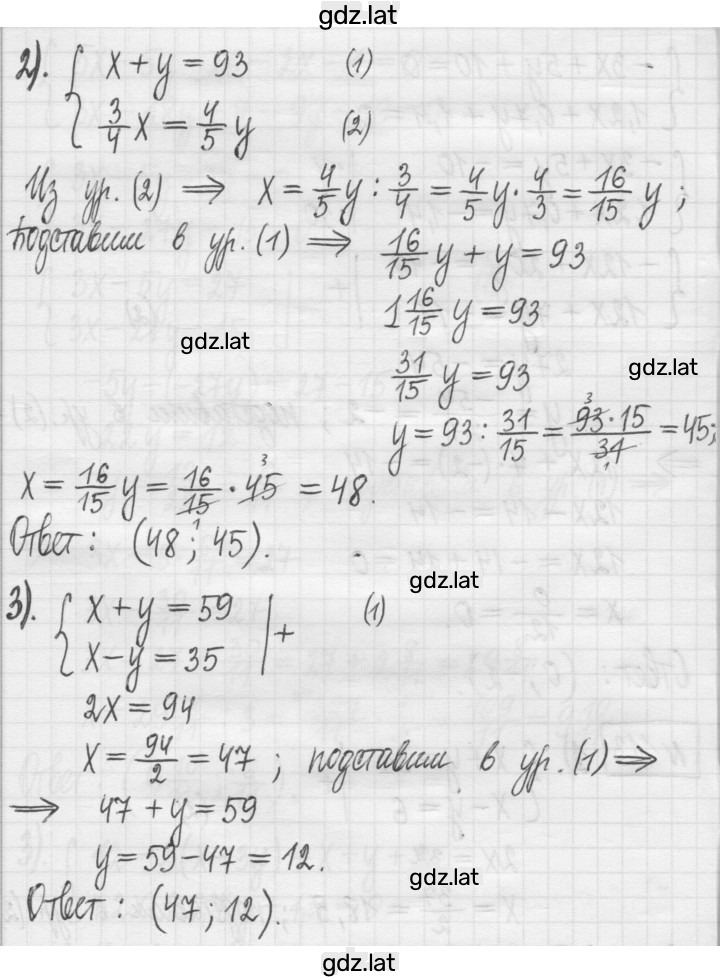 gdz.lat
2). { x + y = 93 (1)
3/4 x = 4/5 y (2)
Из ур. (2) ⟹ x = 4/5 y : 3/4 = 4/5 y · 4/3 = 16/15 y ;
Подставим в ур. (1) ⟹ 16/15 y + y = 93
1 16/15 y = 93
gdz.lat
31/15 y = 93
gdz.lat
y = 93 : 31/15 = 93 · 15 / 31 = 45;
x = 16/15 y = 16/15 · 45 = 48.
Ответ: (48 ; 45).
gdz.lat
3). { x + y = 59 | + (1)
x − y = 35
2x = 94
x = 94/2 = 47 ; подставим в ур. (1) ⟹
⟹ 47 + y = 59
y = 59 − 47 = 12.
gdz.lat
Ответ: (47 ; 12).
gdz.lat